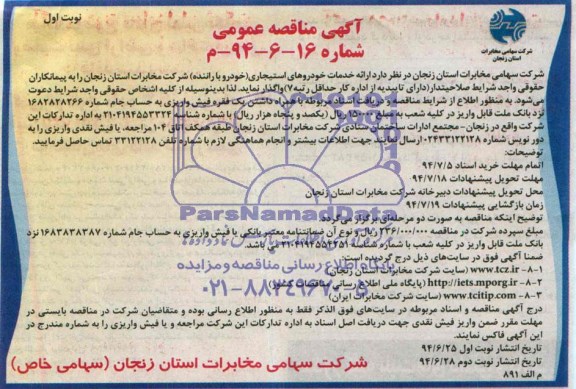 نوبت اول
آگهی مناقصه عمومی
شماره ۱۶-۶-۹۴-م
شرکت سهامی مخابرات
استان زنجان
شرکت سهامی مخابرات استان زنجان در نظر دارد ارائه خدمات خودروهای استیجاری(خودرو با راننده) شرکت مخابرات استان زنجان را به پیمانکاران
حقوقی واجد شرایط صلاحیتدار(دارای تاییدیه از اداره کار حداقل رتبه۷)واگذار نماید. لذا بدینوسیله از کلیه اشخاص حقوقی واجد شرایط دعوت
می‌شود. به منظور اطلاع از شرایط مناقصه و دریافت اسناد مربوطه با همراه داشتن یک فقره فیش واریزی به حساب جام شماره ۱۶۸۲۸۲۸۲۶۶
نزد بانک ملت قابل واریز در کلیه شعب به مبلغ ریال (یکصد و پنجاه هزار ریال) با شماره شناسه ۲۱۰۴۱۹۴۵۵۳۳۲۴ به اداره تدارکات این
شرکت واقع در زنجان- مجتمع ادارات سازمان ستادی شرکت مخابرات استان زنجان طبقه همکف اتاق ۱۰۴ مراجعه، یا فیش نقدی واریزی را به
دور نویس شماره ۰۲۴۳۳۱۲۲۱۳۸ ارسال نمایند. جهت اطلاعات بیشتر و انجام هماهنگی لازم با شماره تلفن ۳۳۱۲۲۱۲۸ تماس حاصل فرمایید.
توضیحات:
اتمام مهلت خرید اسناد ۹۴/۷/۵
مهلت تحویل پیشنهادات ۹۴/۷/۱۸
محل تحویل پیشنهادات دبیرخانه شرکت مخابرات استان زنجان
زمان بازگشایی پیشنهادات ۹۴/۷/۱۹
توضیح اینکه مناقصه به صورت دو مرحله‌ای برگزار می‌گردد
مبلغ سپرده شرکت در مناقصه ۲۳۶/۰۰۰/۰۰۰ ریال و نوع آن ضمانتنامه معتبر بانکی یا فیش واریزی به حساب جام شماره ۱۶۸۳۸۳۸۳۸۷ نزد
بانک ملت قابل واریز در کلیه شعب با شماره شناسه ۲۱۰۴۱۹۴۵۵۴۲۵۱ می باشد.
ضمناً آگهی فوق در سایت‌های ذیل درج گردیده است:
۸-۱- www.tcz.ir (سایت شرکت مخابرات استان زنجان)
۸-۲- http://iets.mporg.ir (پایگاه ملی اطلاع رسانی مناقصات کشور)
۸-۳- www.tcitip.com (سایت شرکت مخابرات ایران)
درج آگهی مناقصه و اسناد مربوطه در سایت‌های فوق الذکر فقط به منظور اطلاع رسانی بوده و متقاضیان شرکت در مناقصه بایستی در
مهلت مقرر ضمن واریز فیش نقدی جهت دریافت اصل اسناد به اداره تدارکات این شرکت مراجعه و یا فیش واریزی را به شماره مندرج در
این آگهی فاکس نمایند.
تاریخ انتشار نوبت اول ۹۴/۶/۲۵
تاریخ انتشار نوبت دوم ۹۴/۶/۲۸
م الف ۸۹۱
شرکت سهامی مخابرات استان زنجان (سهامی خاص)
ParsNamadData
پایگاه اطلاع رسانی مناقصه و مزایده
۰۲۱-۸۸۳۴۹۶۷۰-۵